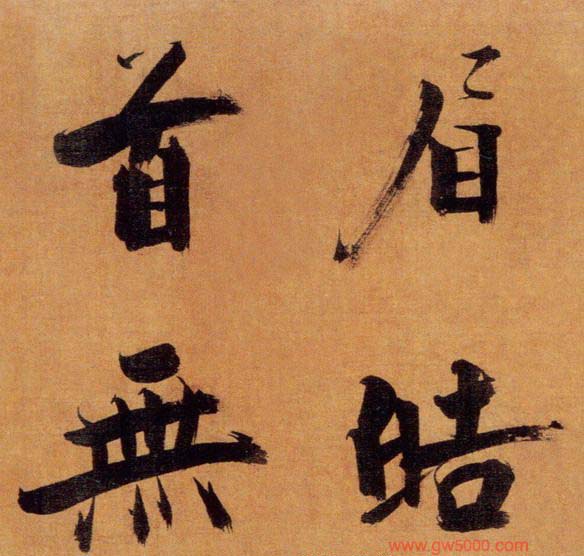 眉皓
首無
www.gw5000.com